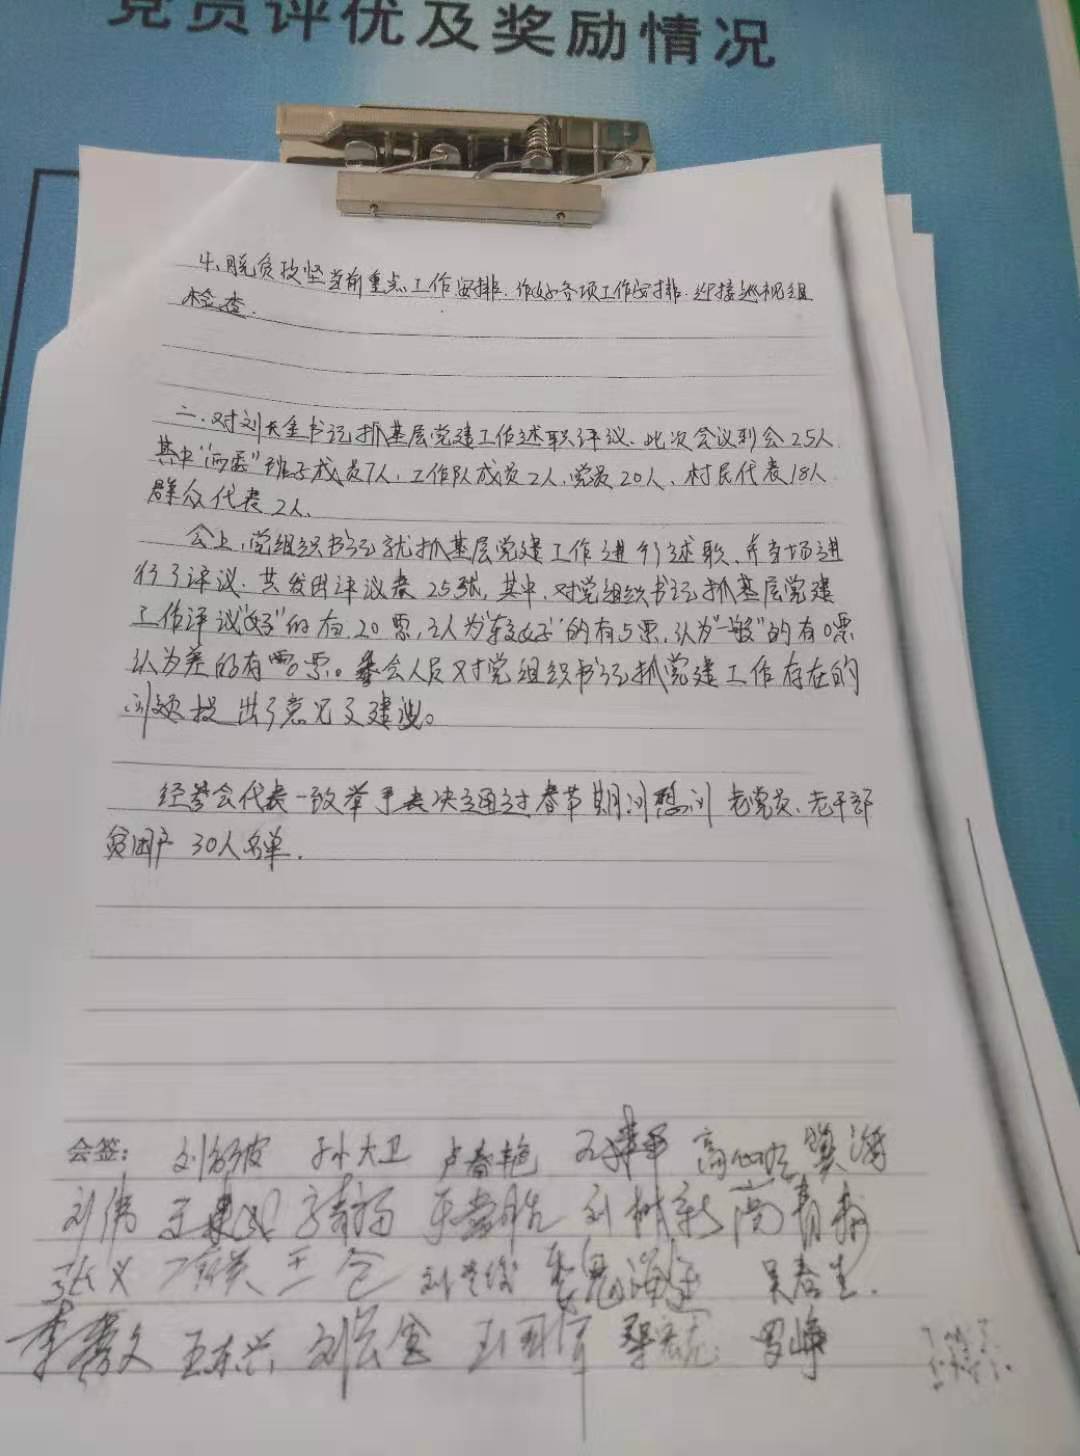 党员评优及奖励情况
4、脱贫攻坚当前重点工作安排.作好各项工作安排.迎接巡视组
检查.
二.对刘天金书记抓基层党建工作述职评议、此次会议到会25人
其中"两委"班子成员7人、工作队成员2人、党员20人、村民代表18人
群众代表2人、
会上,党组织书记就抓基层党建工作进行述职、并当场进
行了评议.共发放评议表25张,其中,对党组织书记抓基层党建
工作评议"好"的有20票,认为"较好"的有5票,认为"一般"的有0票
认为差的有0票。参会人员对党组织书记抓党建工作存在的
问题提出了意见及建议。
经参会代表一致举手表决通过春节期间慰问老党员、老干部
贫困户30人名单.
会签: 孙大卫 卢春艳
刘伟 刘树新 高青树
张义 王仓 吴春生.
王东兴 罗峥